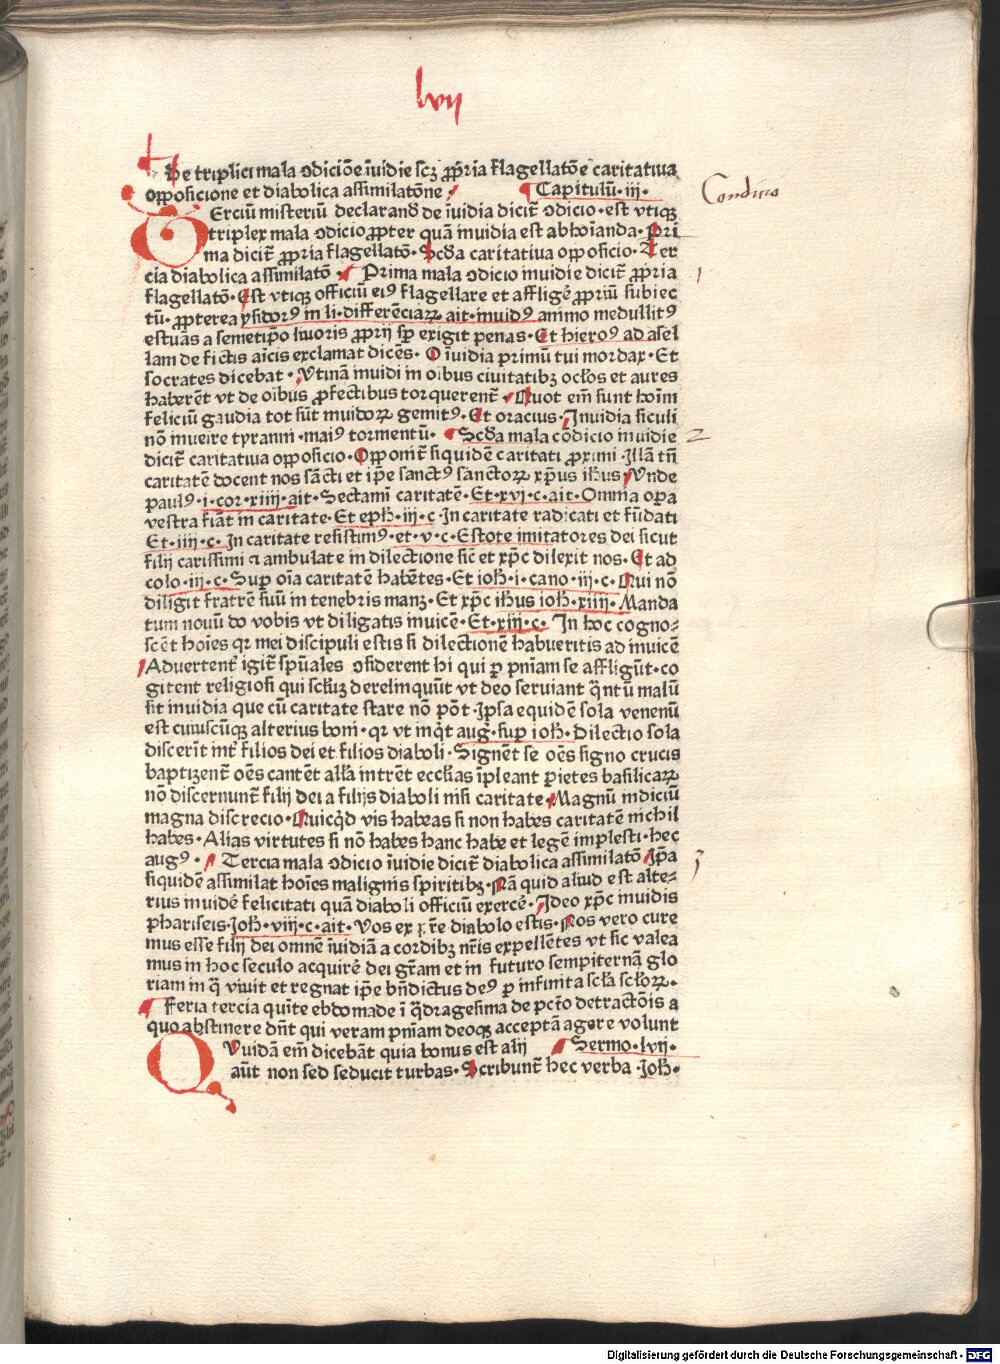 lvii
De triplici mala ↄdiciōe īuidie scꝫ ꝓpͥa flagellatōe caritatiua
oꝓposicione et diabolica assimilatōne · Capitulū · iii ·
Condicio
TErciū misteriū declarand̄ de īuidia dicit̄ ↄdicio · est vtiqꝫ
triplex mala ↄdicio ꝓpter quā inuidia est abhoīanda · Pri
ma dicit̄ ꝓpria flagellatō · Scd̄a caritatiua oꝓposicio · Ter
cia diabolica assimilatō · Prima mala ↄdicio inuidie dicit̄ ꝓpria
1
flagellatō · Est vtiqꝫ officiū eiꝰ flagellare et affligē ꝓpriū subiec
tū · ꝓpterea ysidorꝰ in li · differēciaꝝ ait · inuidꝰ animo medullitꝰ
estuās a semetip̄o liuoris ꝓprij sꝑ exigit penas · Et hieroꝰ ad asel
lam de fictis aīcis exclamat dicēs · O īuidia primū tui mordax · Et
socrates dicebat · Vtinā inuidi in oībus ciuitatibꝫ ocl̄os et aures
haberēt vt de oībus ꝓfectibus torquerent̄ · Quot em̄ sunt hoīm
feliciū gaudia tot sūt inuidoꝝ gemitꝰ · Et oracius · Inuidia siculi
nō inueīre tyranni · maiꝰ tormentū · Scd̄a mala cōdicio inuidie
2
dicit̄ caritatiua oꝓposicio · Oꝓponit̄ siquidē caritati ꝓximi · Illā tn̄
caritatē docent nos sācti et ip̄e sanctꝰ sanctoꝝ xp̄us ih̄us · Vnde
paulꝰ · i · cor · xiiii · ait · Sectamī caritatē · Et · xvi · c · ait · Omnia oꝑa
vestra fiāt in caritate · Et eph̄ · iii · c · In caritate radicati et fūdati
Et · iiii · c · In caritate resistimꝰ · et · v · c · Estote imitatores dei sicut
filij carissimi ⁊ ambulate in dilectione sic̄ et xp̄c dilexit nos · Et ad
colo · iii · c · Suꝑ oīa caritatē habētes · Et ioh̄ · i · cano · iii · c · Qui nō
diligit fratrē suū in tenebris manꝫ · Et xp̄c ih̄us ioh̄ · xiii · Manda
tum nouū do vobis vt diligatis inuicē · Et · xiii · c · In hoc cogno⸗
scēt hoīes qꝛ mei discipuli estis si dilectionē habueritis ad inuicē
Aduertent̄ igit̄ sp̄uales ↄsiderent hi qui ꝑ pn̄iam se affligūt · co
gitent religiosi qui sclm̄ꝫ derelinquūt vt deo seruiant q̄nt ū malū
sit inuidia que cū caritate stare nō pōt · Ip̄sa equidē sola venenū
est cuiuscūqꝫ alterius boni · qꝛ vt inq̄t auḡ · suꝑ ioh̄ · Dilectio sola
discerit int̄ filios dei et filios diaboli · Signēt se oēs signo crucis
baptizent̄ oēs cantēt all̄a intrēt eccl̄ias īpleant ꝑietes basilicaꝝ
nō discernunt̄ filij dei a filijs diaboli nisi caritate · Magnū indiciū
magna discrecio · Quicq̄d vis habeas si non habes caritatē nichil
habes · Alias virtutes si nō habes hanc habe et legē implesti · hec
augꝰ · Tercia mala ↄdicio īuidie dicit̄ diabolica assimilatō Ip̄a
3
siquidē assimilat hoīes malignis spiritibꝫ · Nā quid aliud est alte⸗
rius inuidē felicitati quā diaboli officiū exercē · Ideo xp̄c inuidis
phariseis · Ioh̄ · viii · c · ait · Vos ex pr̄e diabolo estis · Nos vero cure
mus esse filij dei omnē īuidiā a cordibꝫ nr̄is expellētes vt sic valea
mus in hoc seculo acquirē dei gr̄am et in futuro sempiternā glo
riam in q̄ viuit et regnat ip̄e bn̄dictus deꝰ ꝑ infinita scl̄a scl̄oꝝ ·
Feria tercia quīte ebdomade ī q̄dragesima de pctō detractōis a
quo abstinere dn̄t qui veram pn̄iam deoqꝫ acceptā agere volunt
QVuidā em̄ dicebāt quia bonus est alij Sermo · lvii ·
aūt non sed seducit turbas · Scribunt̄ hec verba · Ioh̄ ·
Digitalisierung gefördert durch die Deutsche Forschungsgemeinschaft - DFG